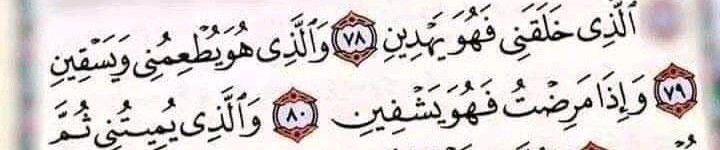 ٱلَّذِى خَلَقَنِى فَهُوَ يَهْدِينِ ٧٨ وَٱلَّذِى هُوَ يُطْعِمُنِى وَيَسْقِينِ
٧٩ وَإِذَا مَرِضْتُ فَهُوَ يَشْفِينِ ٨٠ وَٱلَّذِى يُمِيتُنِى ثُمَّ